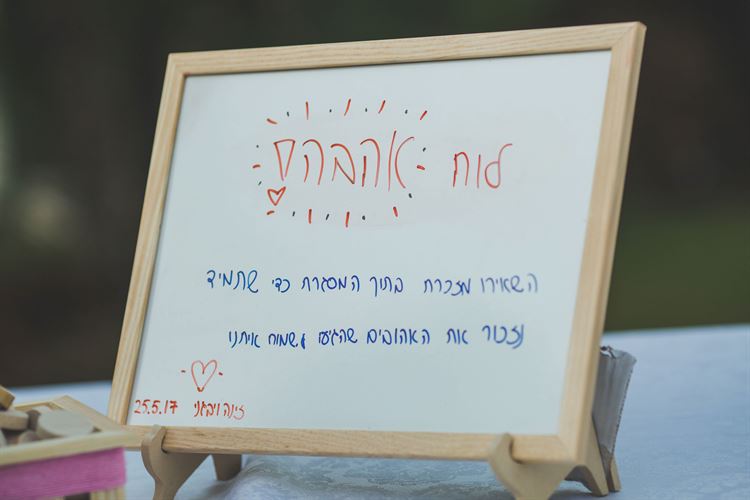 לוח אהבה!
השאירו מזכרת בתוך המסגרת כדי שתמיד
נזכור את האהובים שהגיעו לשמוח איתנו
25.5.17